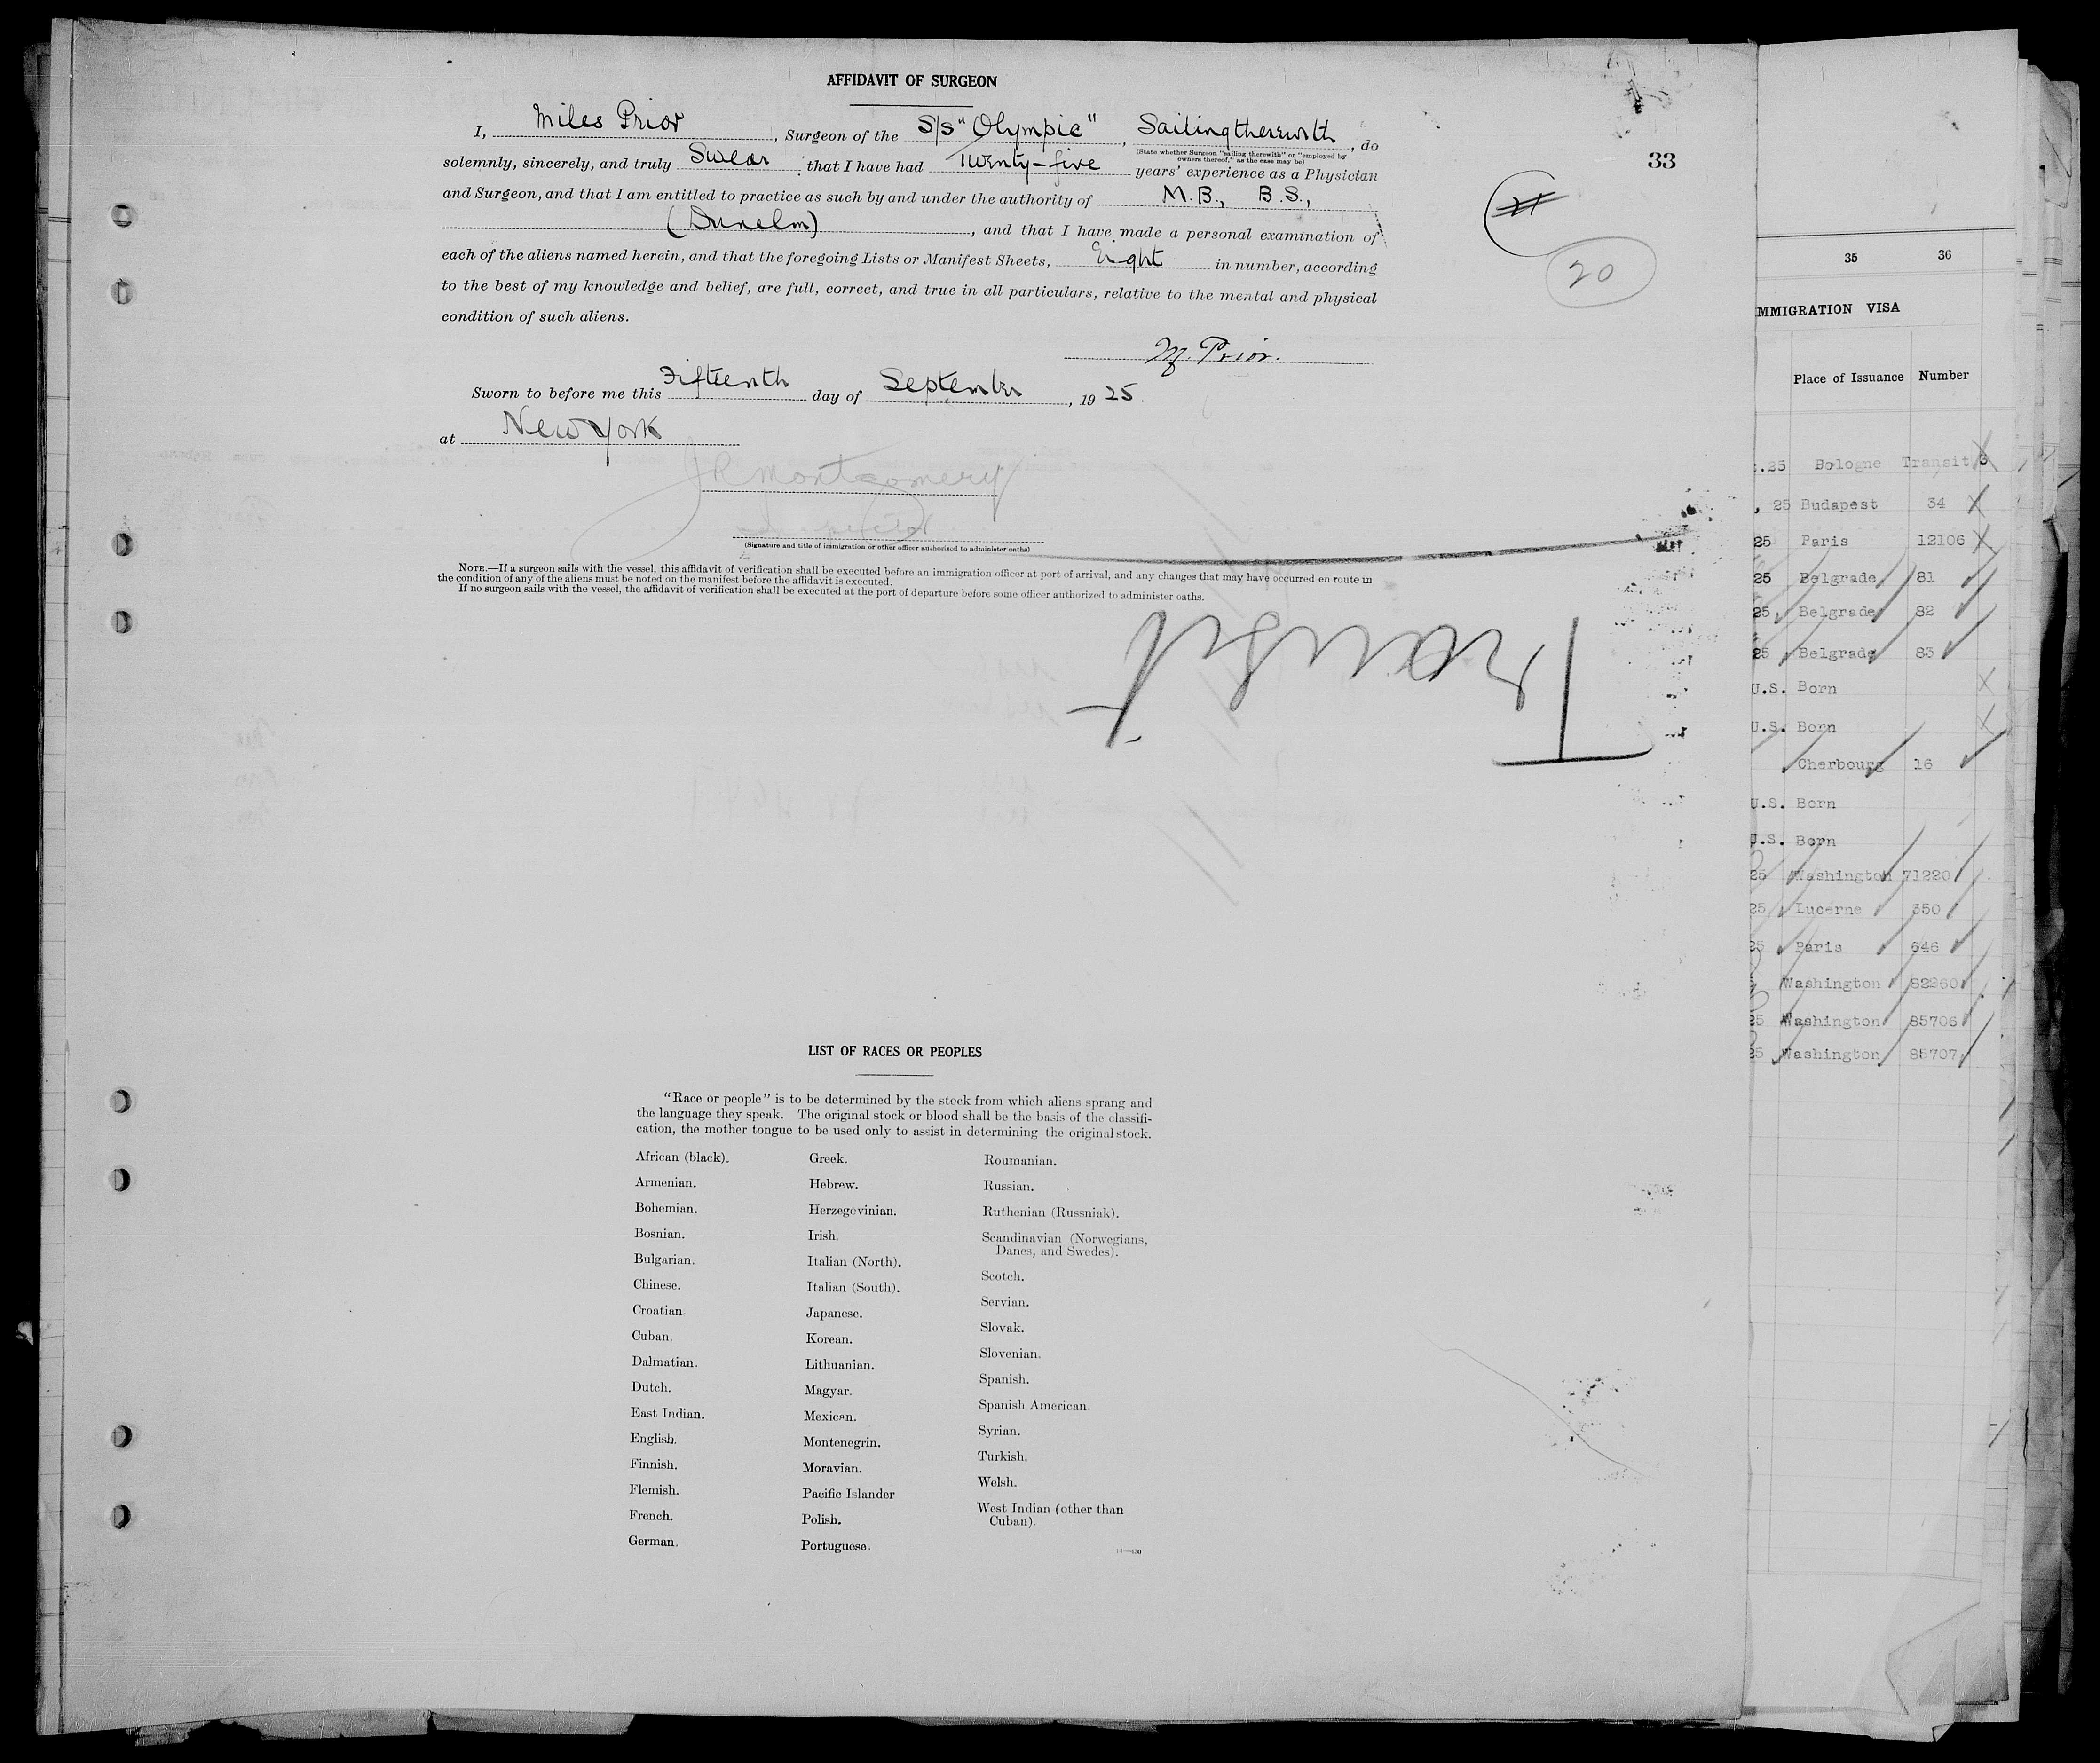 AFFIDAVIT OF SURGEON
I, Miles Prior, Surgeon of the S/S "Olympic", Sailing therewith, do
(State whether Surgeon "sailing therewith" or "employed by
owners thereof," as the case may be)
solemnly, sincerely, and truly Swear that I have had Twenty-five years' experience as a Physician
33
and Surgeon, and that I am entitled to practice as such by and under the authority of M.B., B.S.,
(Dunelm), and that I have made a personal examination of
each of the aliens named herein, and that the foregoing Lists or Manifest Sheets, Eight in number, according
20
to the best of my knowledge and belief, are full, correct, and true in all particulars, relative to the mental and physical
condition of such aliens.
M. Prior.
Sworn to before me this Fifteenth day of September, 1925.
at New York
Montgomery
Inspector
(Signature and title of immigration or other officer authorized to administer oaths)
NOTE.—If a surgeon sails with the vessel, this affidavit of verification shall be executed before an immigration officer at port of arrival, and any changes that may have occurred en route in
the condition of any of the aliens must be noted on the manifest before the affidavit is executed.
If no surgeon sails with the vessel, the affidavit of verification shall be executed at the port of departure before some officer authorized to administer oaths.
Transit
LIST OF RACES OR PEOPLES
"Race or people" is to be determined by the stock from which aliens sprang and
the language they speak. The original stock or blood shall be the basis of the classifi-
cation, the mother tongue to be used only to assist in determining the original stock.
African (black).
Armenian.
Bohemian.
Bosnian.
Bulgarian.
Chinese.
Croatian.
Cuban.
Dalmatian.
Dutch.
East Indian.
English.
Finnish.
Flemish.
French.
German.
Greek.
Hebrew.
Herzegovinian.
Irish.
Italian (North).
Italian (South).
Japanese.
Korean.
Lithuanian.
Magyar.
Mexican.
Montenegrin.
Moravian.
Pacific Islander
Polish.
Portuguese.
Roumanian.
Russian.
Ruthenian (Russniak).
Scandinavian (Norwegians,
Danes, and Swedes).
Scotch.
Servian.
Slovak.
Slovenian.
Spanish.
Spanish American.
Syrian.
Turkish.
Welsh.
West Indian (other than
Cuban).
35 36
MMIGRATION VISA
Place of Issuance Number
.25 Bologne Transit
, 25 Budapest 34
25 Paris 12106
25 Belgrade 81
25, Belgrade 82
25 Belgrade 83
U.S. Born
U.S. Born
Cherbourg 16
U.S. Born
U.S. Born
25 Washington 71220
25 Lucerne 350
25 Paris 646
Washington 82260
25 Washington 85706
25 Washington 85707